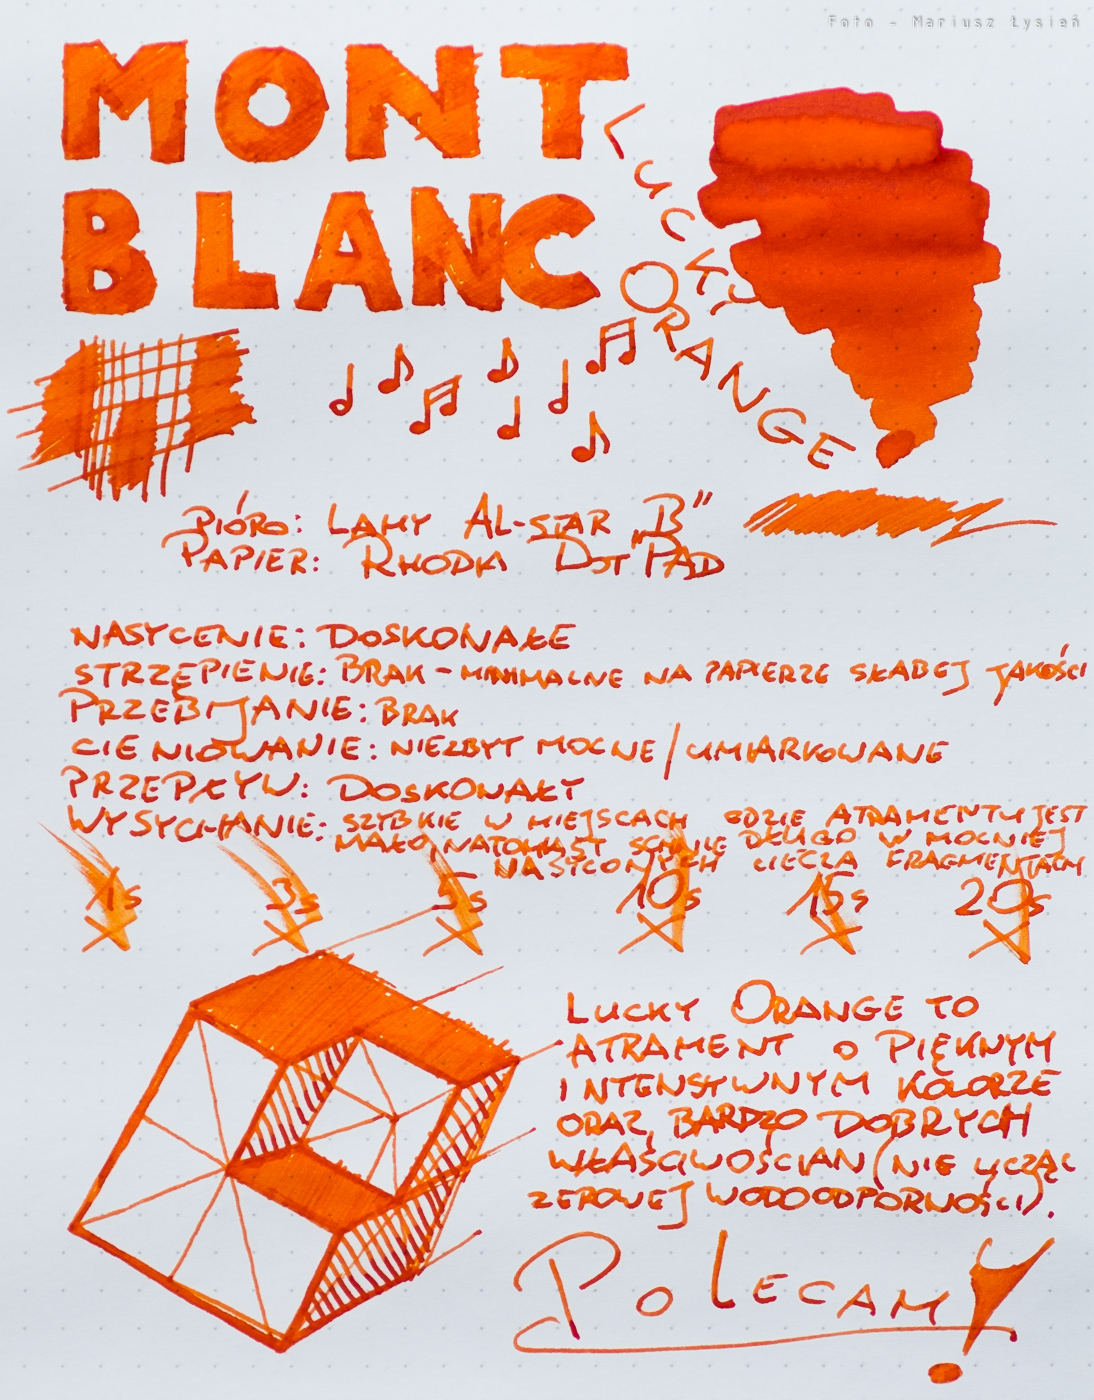 Foto - Mariusz Łysień
MONT
BLANC
LUCKY
ORANGE
PIÓRO: LAMY AL-STAR „B”
PAPIER: RHODIA DOT PAD
NASYCENIE: DOSKONAŁE
STRZĘPIENIE: BRAK - MINIMALNE NA PAPIERZE SŁABEJ JAKOŚCI
PRZEBIJANIE: BRAK
CIENIOWANIE: NIEZBYT MOCNE/UMIARKOWANE
PRZEPŁYW: DOSKONAŁY
WYSYCHANIE: SZYBKIE W MIEJSCACH GDZIE ATRAMENTU JEST
MAŁO, NATOMIAST SCHNIE DŁUGO W MOCNIEJ
NASYCONYCH CIECZĄ FRAGMENTACH
1s 3s 5s 10s 15s 20s
LUCKY ORANGE TO
ATRAMENT O PIĘKNYM
INTENSYWNYM KOLORZE
ORAZ BARDZO DOBRYCH
WŁAŚCIWOŚCIAN (NIE LICZĄC
ZEROWEJ WODOODPORNOŚCI).
POLECAM!